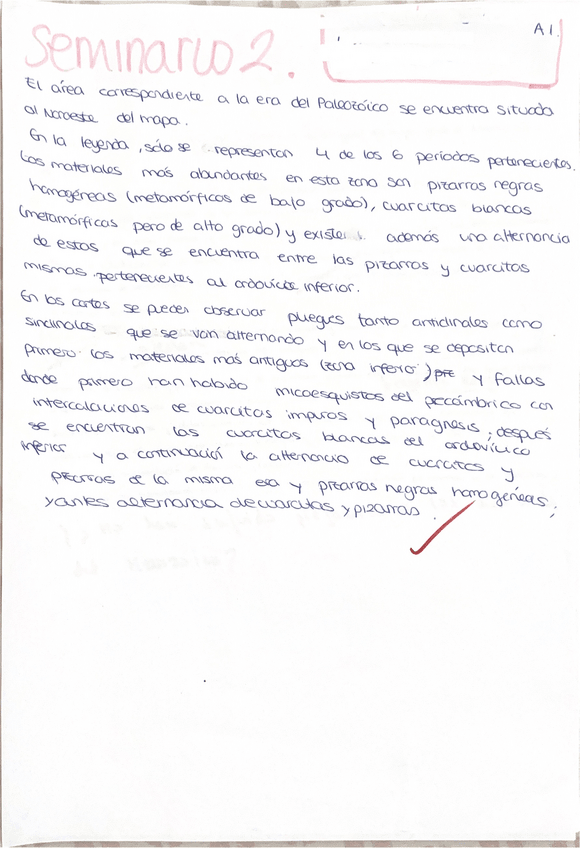 Seminario 2.
A1.
El área correspondiente a la era del Paleozoico se encuentra situada
al Noroeste del mapa.
En la leyenda, sólo se representan 4 de los 6 periodos pertenecientes.
Los materiales más abundantes en esta zona son pizarras negras
homogéneas (metamórficos de bajo grado), cuarcitas blancas
(metamórficas pero de alto grado) y existe además una alternancia
de estas que se encuentra entre las pizarras y cuarcitas
mismas pertenecientes al ordovícico inferior.
En los cortes se pueden observar pliegues tanto anticlinales como
sinclinales que se van alternando y en los que se depositan
primero los materiales más antiguos (zona inferior) y fallas
donde primero han habido micaesquistos del precámbrico con
intercalaciones de cuarcitas impuras y paragneis; después
se encuentran las cuarcitas blancas del ordovícico
inferior y a continuación la alternancia de cuarcitas y
pizarras de la misma era y pizarras negras homogéneas;
y antes alternancia de cuarcitas y pizarras.